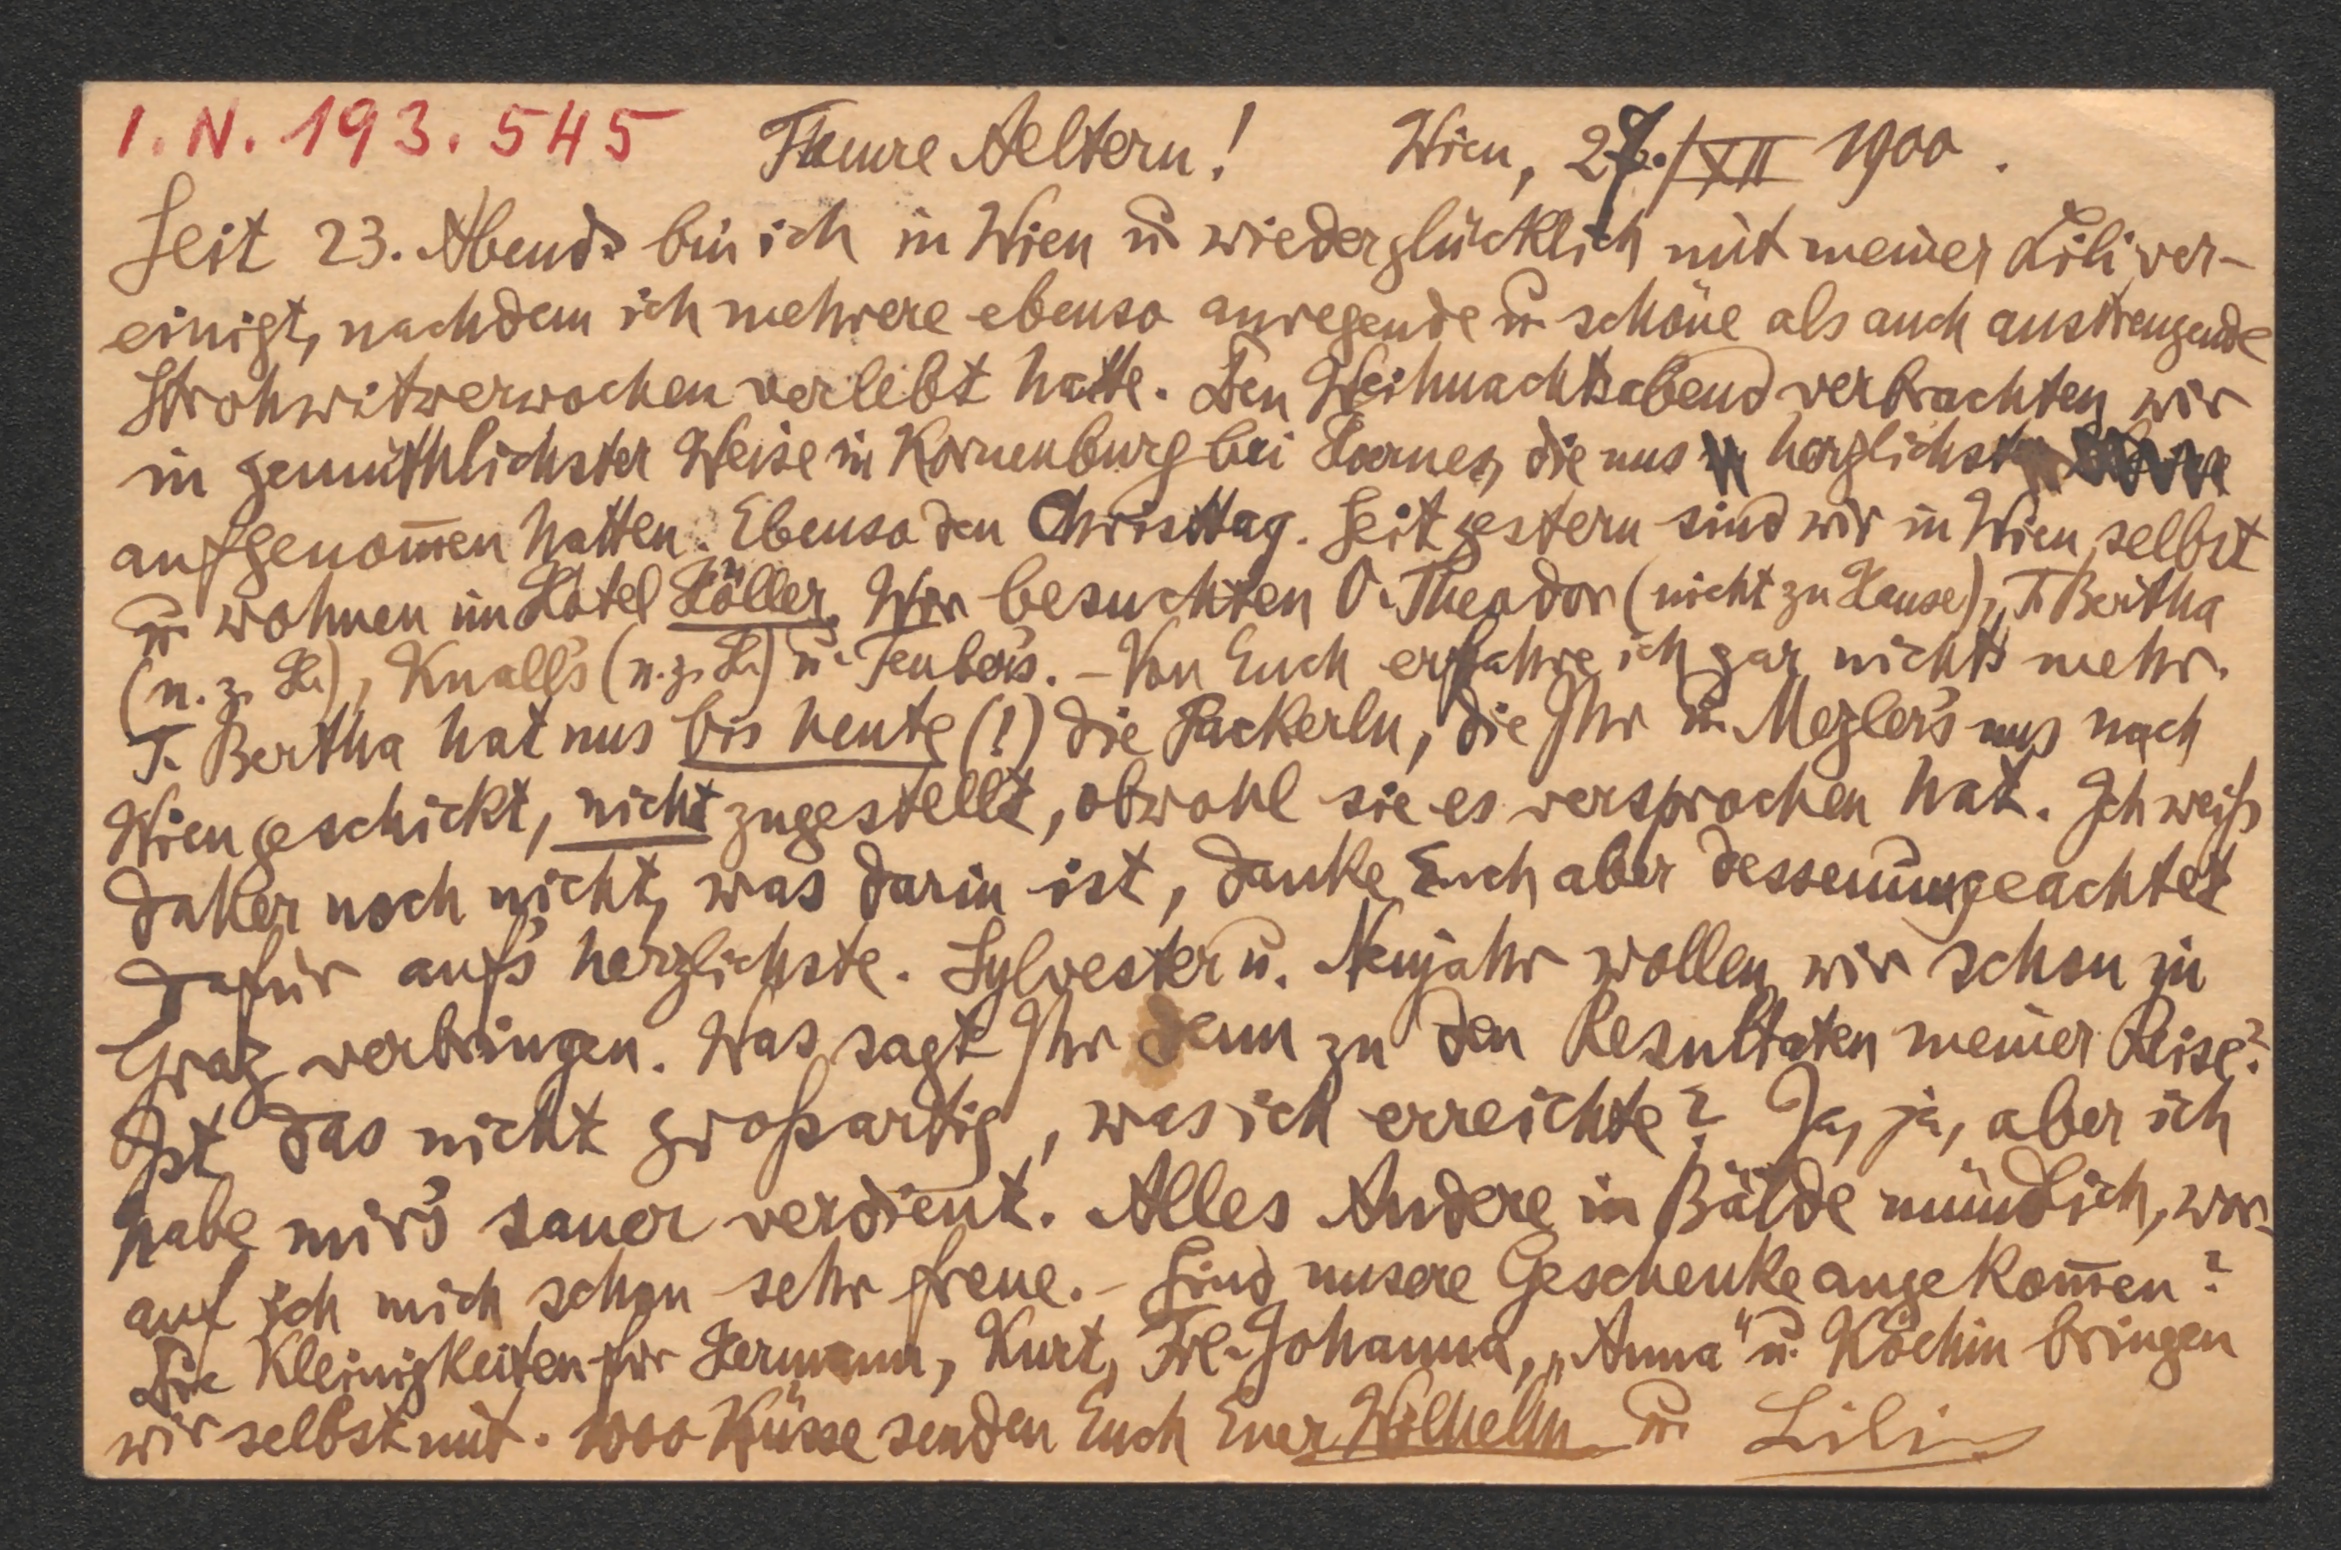 I.N. 193.545
Theure Aeltern! Wien, 27./XII 1900.
Seit 23. Abends bin ich in Wien u. wieder glücklich mit meiner Lili ver-
einigt, nachdem ich mehrere ebenso anregende u. schöne als auch anstrengende
Strohwitwerwochen verlebt hatte. Den Weihnachtsabend verbrachten wir
in gemüthlichster Weise in Korneuburg bei Hoernes, die uns herzlichst
aufgenom̅en hatten. Ebenso den Christtag. Seit gestern sind wir in Wien selbst
u. wohnen im Hotel Höller. Wir besuchten O. Theodor (nicht zu Hause), T. Bertha
(n. z. H.), Knall's (n. z. H.) u. Teuber's. – Von Euch erfahre ich gar nichts mehr.
T. Bertha hat uns bis heute (!) die Packerln, die Ihr u. Mezler's uns nach
Wien geschickt, nicht zugestellt, obwohl sie es versprochen hat. Ich weiß
daher noch nicht, was darin ist, danke Euch aber dessenungeachtet
dafür aufs herzlichste. Sylvester u. Neujahr wollen wir schon in
Graz verbringen. Was sagt Ihr denn zu den Resultaten meiner Reise?
Ist das nicht großartig, was ich erreichte? Ja, ja, aber ich
habe mir's sauer verdient. Alles Andere in Bälde mündlich, wor-
auf ich mich schon sehr freue. – Sind unsere Geschenke angekom̅en?
Die Kleinigkeiten für Hermann, Kurt, Frl. Johanna, „Anna“ u. Köchin bringen
wir selbst mit. 1000 Küsse senden Euch Euer Wilhelm u. Lili